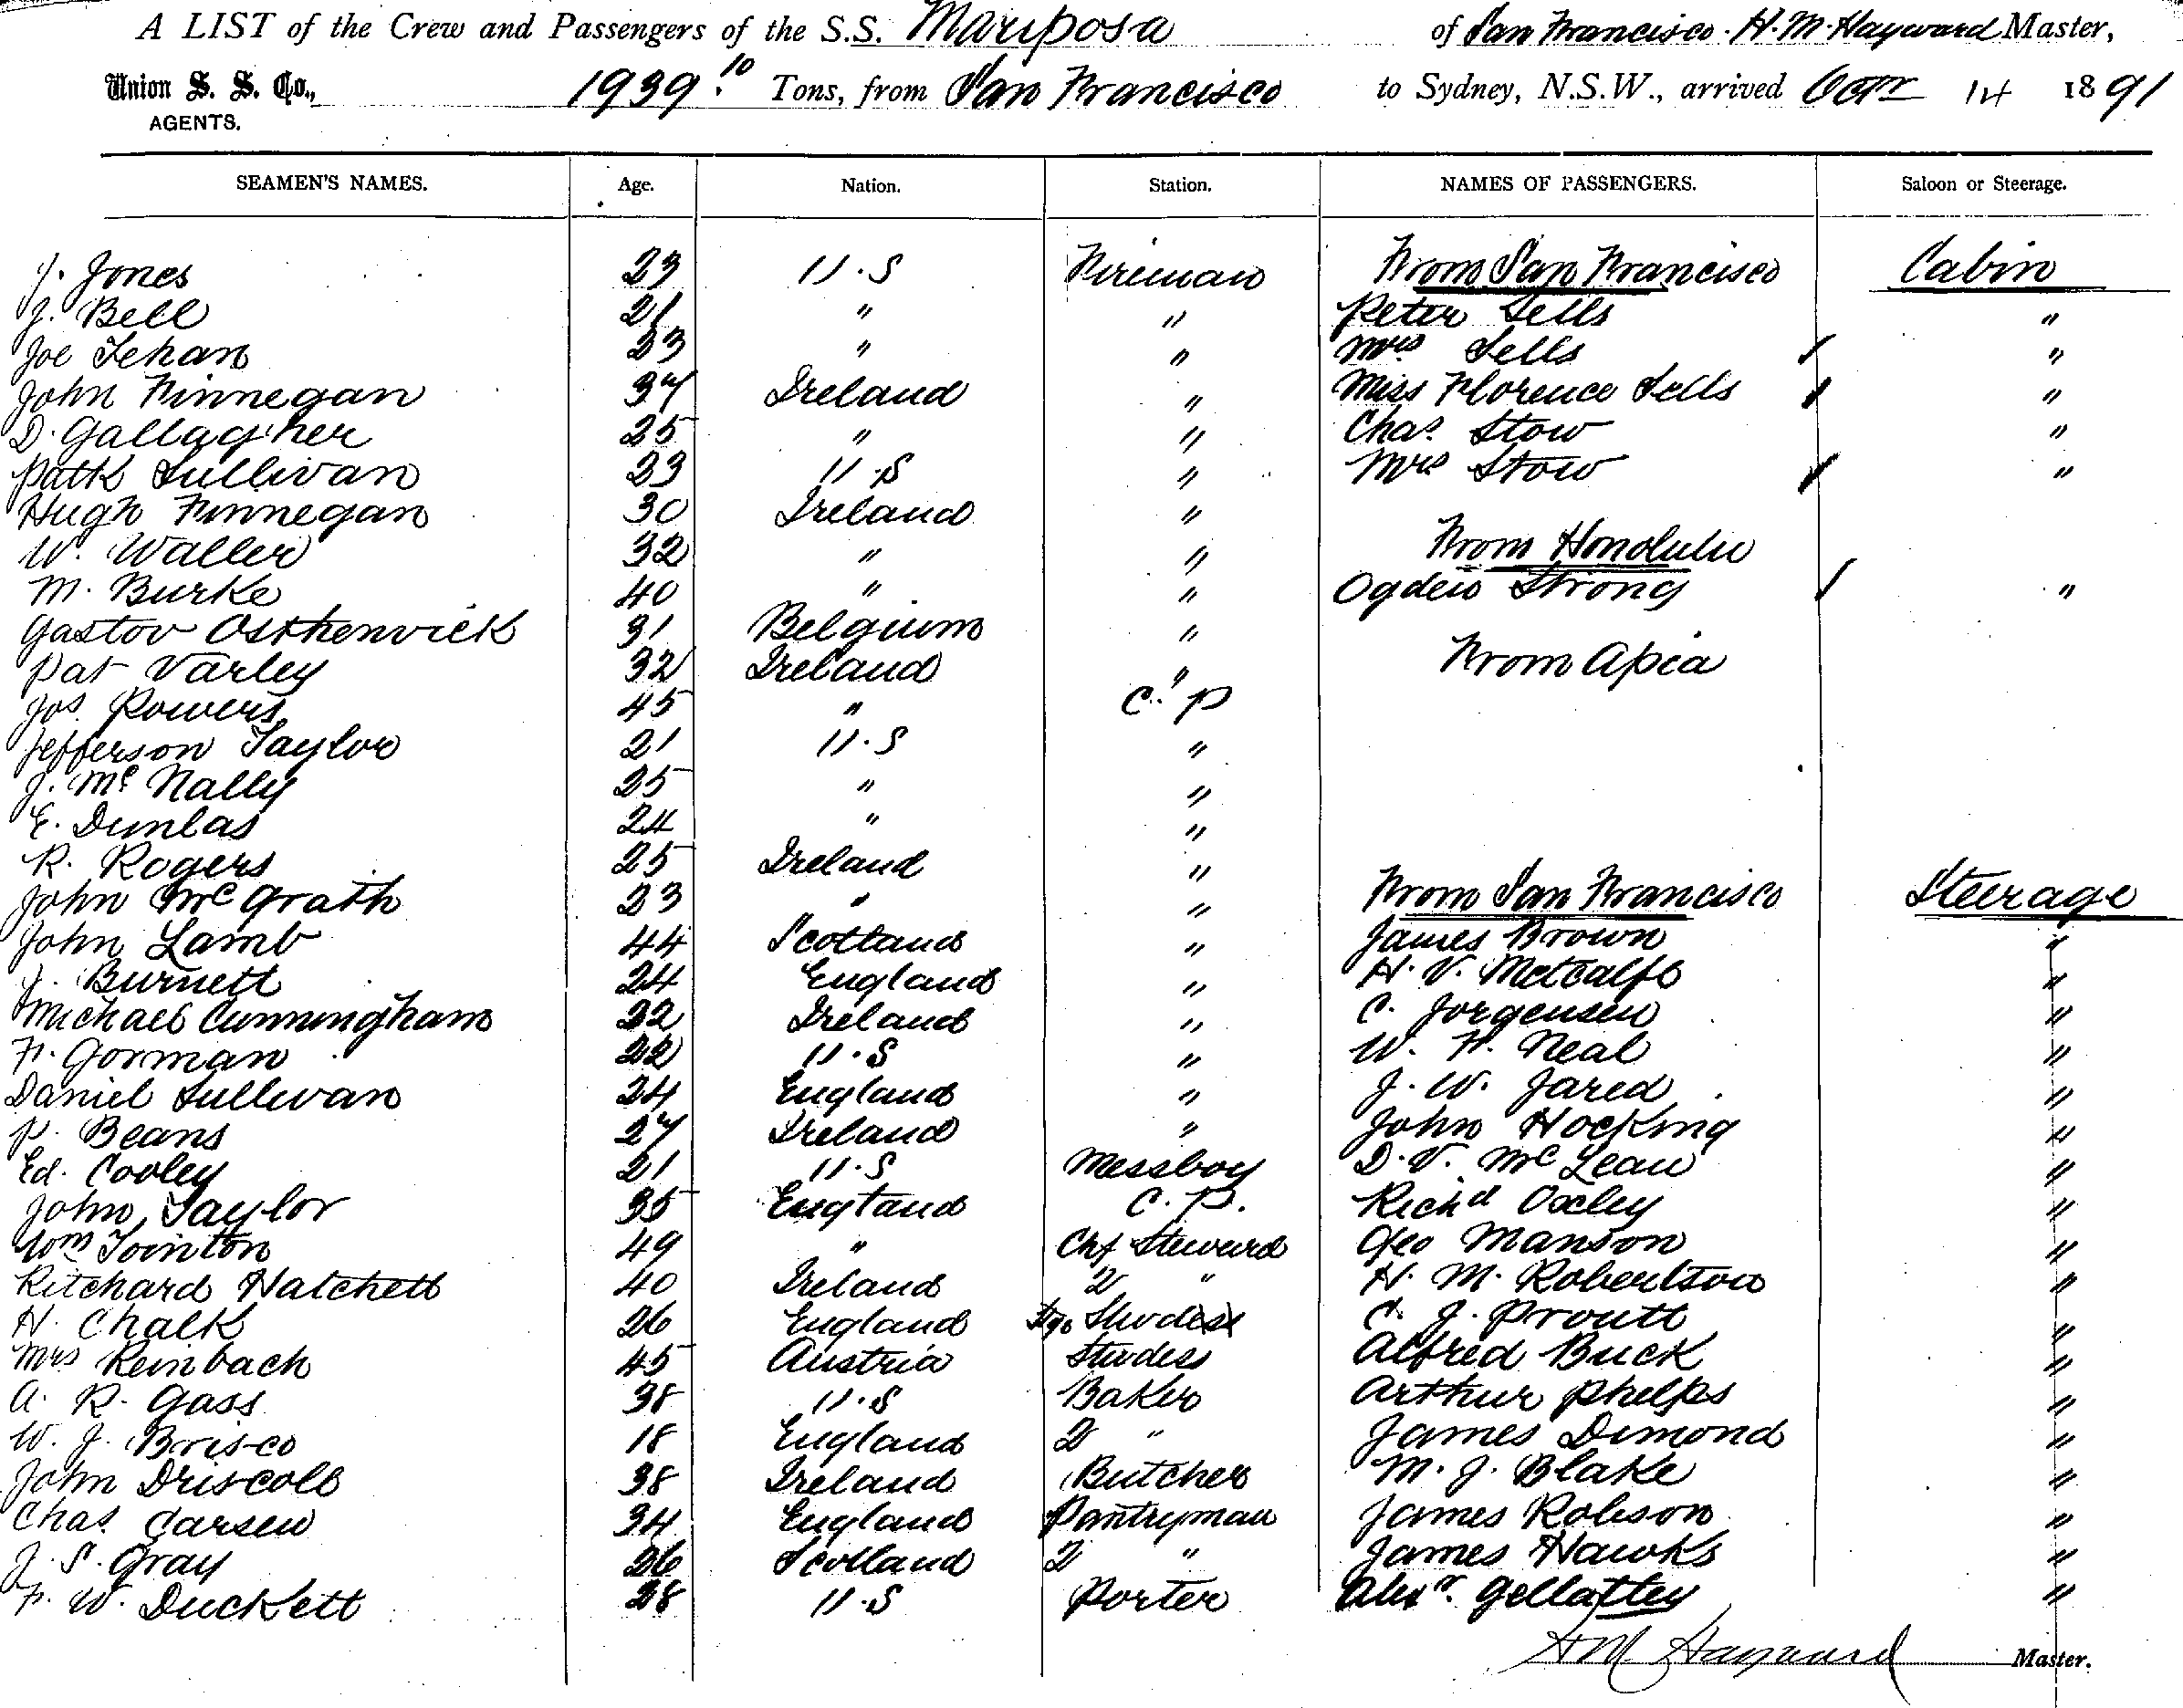 A LIST of the Crew and Passengers of the S.S. Mariposa of San Francisco. H. M. Hayward Master,
Union S. S. Co., 1939 10 Tons, from San Francisco to Sydney, N.S.W., arrived Octr 14 1891
AGENTS.
SEAMEN'S NAMES. Age. Nation. Station. NAMES OF PASSENGERS. Saloon or Steerage.
J. Jones 23 U.S Fireman From San Francisco Cabin
J. Bell 21 " " Peter Sells "
Joe Tehan 23 " " Mrs Sells "
John Finnegan 37 Ireland " Miss Florence Sells "
D. Gallagher 25 " " Chas. Stow "
Patk Sullivan 23 U.S " Mrs Stow "
Hugh Finnegan 30 Ireland "
From Honolulu
W. Waller 32 " "
M. Burke 40 " " Ogden Strong "
Gaston 31 Belgium "
Pat Varley 32 Ireland " From Apia
Jos. Powers 45 " C. P
Jefferson Taylor 21 U.S "
J. Mc Nally 25 " "
E. Dunlas 24 " "
R. Rogers 25 Ireland "
John McGrath 23 " " From San Francisco Steerage
John Lamb 44 Scotland " James Brown "
J. Burnett 24 England " H. V. Metcalfe "
Michael Cunningham 22 Ireland " C. Jorgensen "
F. Gorman 22 U.S " W. F. Neal "
Daniel Sullivan 24 England " J. W. Jared "
P. Beans 27 Ireland " John Hocking "
Ed. Cooley 21 U.S Messboy D. V. Mc Lean "
John Taylor 35 England C. P. Richd Oxley "
Wm Tointon 49 " Chf Steward Geo Manson "
Ritchard Hatchett 40 Ireland 2 " H. M. Robertson "
H. Chalk 26 England C. J. Proutt "
Mrs Reinbach 45 Austria Stwdess Alfred Buck "
A. R. Gass 38 U.S Baker Arthur Phelps "
W. J. Brisco 18 England 2 " James Dimond "
John Driscoll 38 Ireland Butcher M. J. Blake "
Chas. Carsen 34 England Pantryman James Robson "
J. S. Gray 26 Scotland 2 " James Hawks "
F. W. Duckett 28 U.S Porter Alexr. Gellatley "
H M Hayward Master.